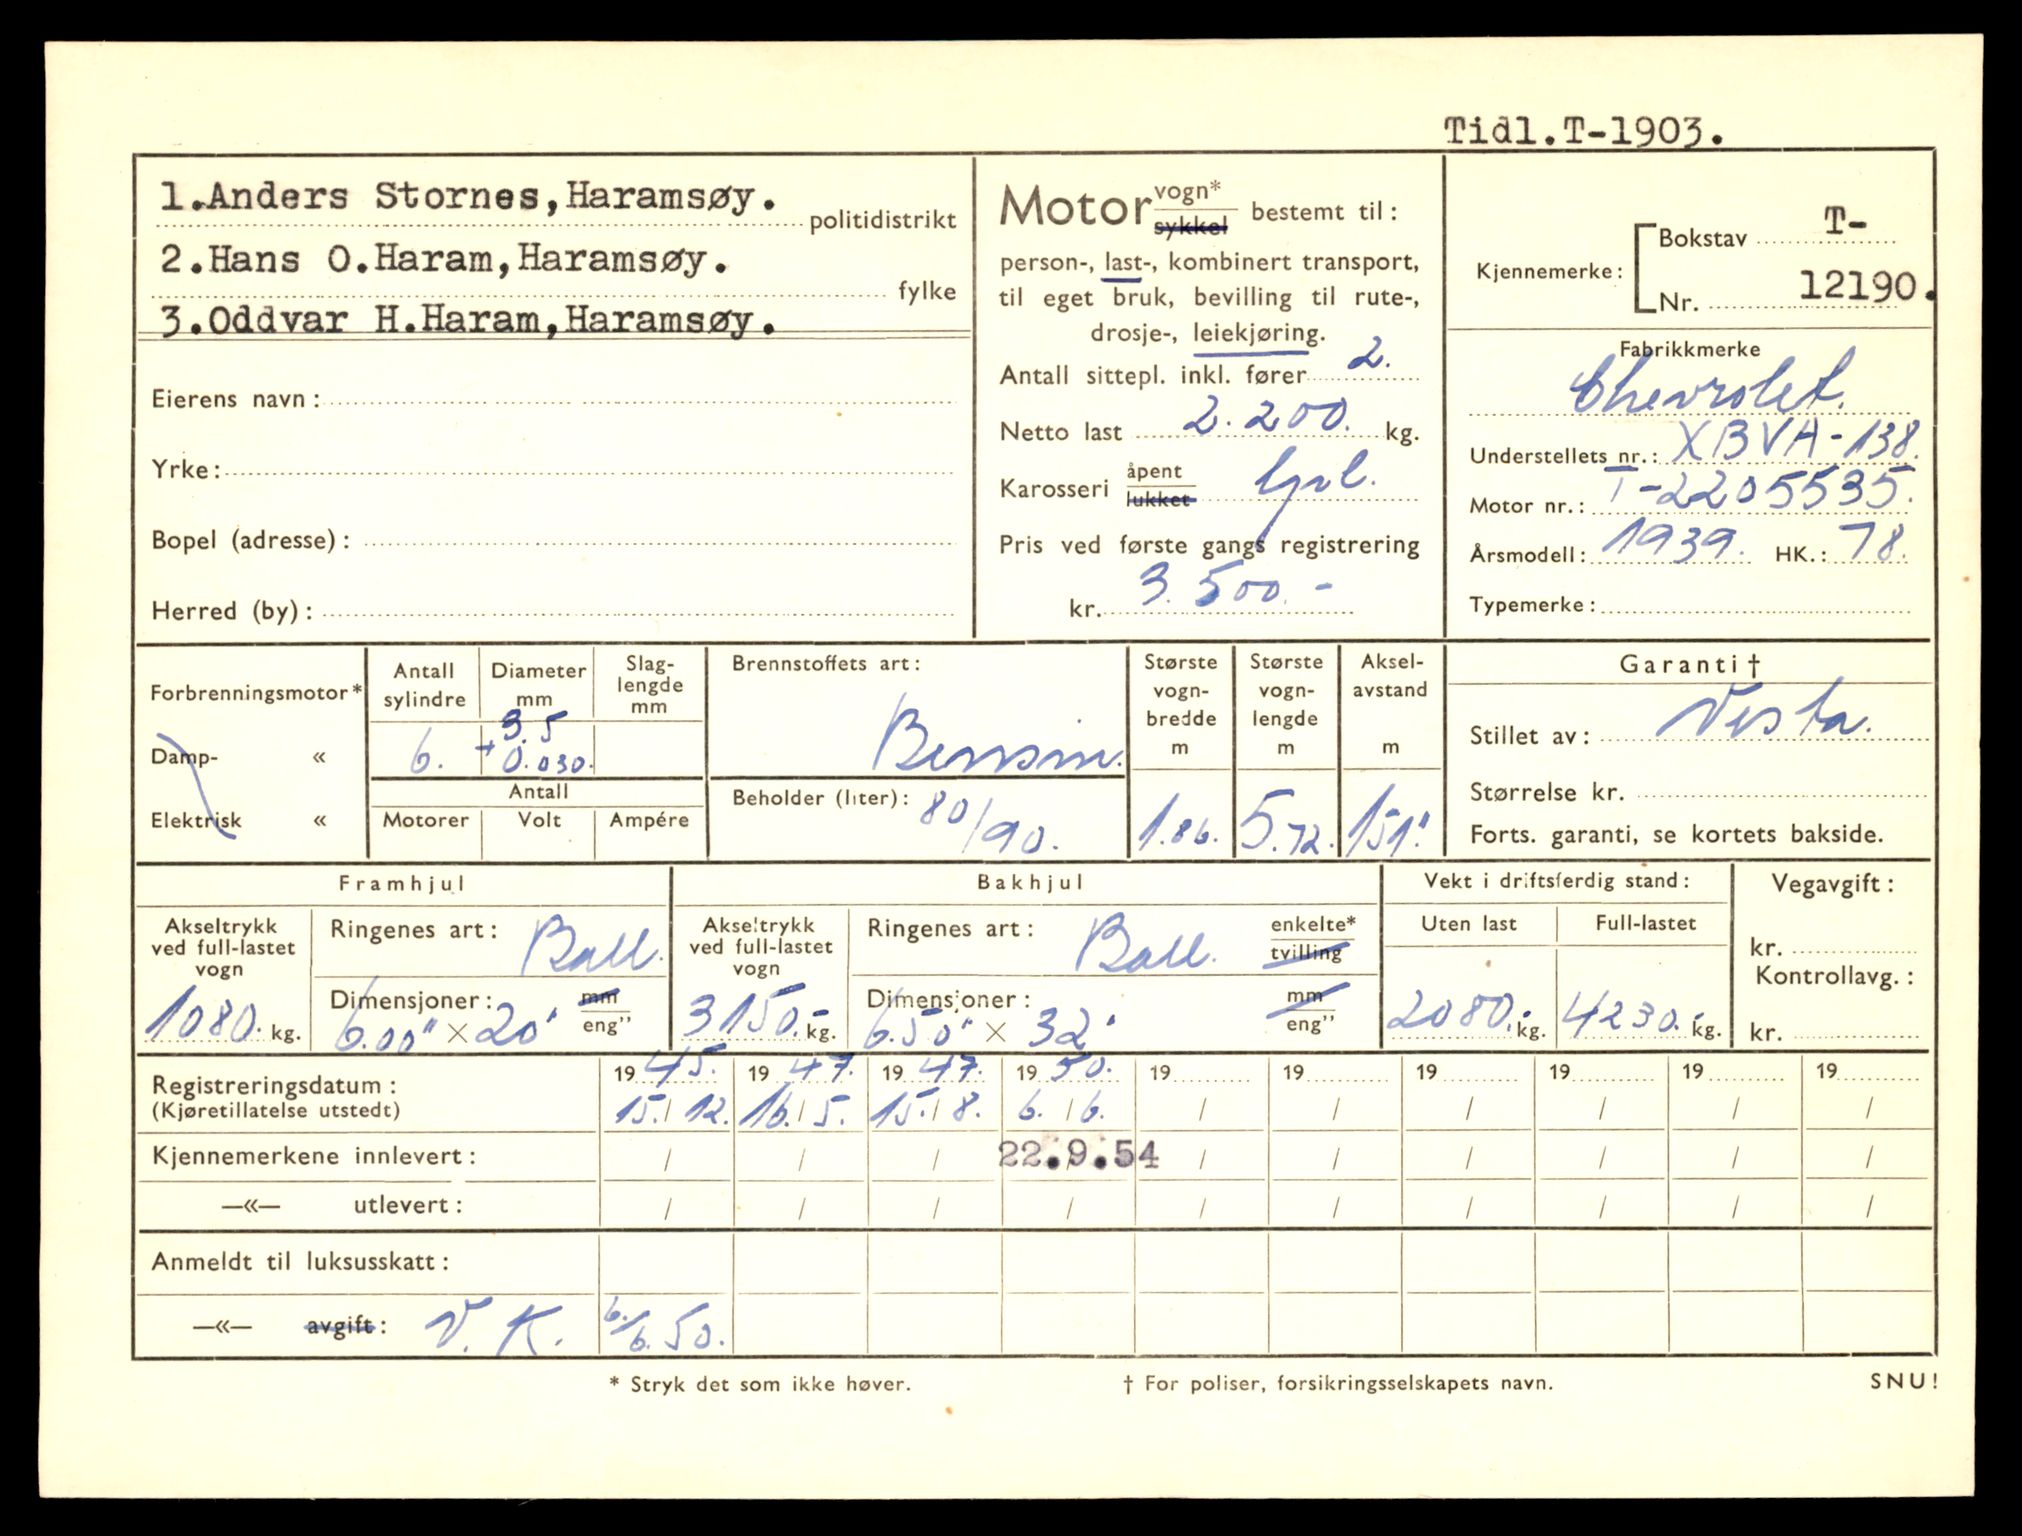 Tidl.T-1903.
1.Anders Stornes,Haramsøy.
politidistrikt
2.Hans O.Haram,Haramsøy.
fylke
3.Oddvar H.Haram,Haramsøy.
Eierens navn:
Yrke:
Bopel (adresse):
Herred (by):
Motor vogn* sykkel bestemt til:
person-, last-, kombinert transport,
til eget bruk, bevilling til rute-,
drosje-, leiekjøring.
Antall sittepl. inkl. fører 2.
Netto last 2.200. kg.
Karosseri åpent lukket
Pris ved første gangs registrering
kr. 3.500.-
Kjennemerke: Bokstav T-
Nr. 12190.
Fabrikkmerke
Chevrolet.
Understellets nr.: XBVA-138.
Motor nr.: T-2205535.
Årsmodell: 1939. HK.: 78.
Typemerke:
Forbrenningsmotor*
Damp- «
Elektrisk «
Antall sylindre
6.
Diameter mm
3.5
+0.030.
Slag-
lengde
mm
Antall
Motorer Volt Ampére
Brennstoffets art:
Bensin.
Beholder (liter): 80/90.
Største
vogn-
bredde
m
1.86.
Største
vogn-
lengde
m
5.72.
Aksel-
avstand
m
151".
Garanti †
Stillet av: Vesta.
Størrelse kr.
Forts. garanti, se kortets bakside.
Framhjul
Akseltrykk
ved full-lastet
vogn
1080. kg.
Ringenes art: Ball.
Dimensjoner: mm
6.00" × 20" eng"
Bakhjul
Akseltrykk
ved full-lastet
vogn
3150.- kg.
Ringenes art: Ball. enkelte*
tvilling
Dimensjoner: mm
6.50" × 32" eng"
Vekt i driftsferdig stand:
Uten last Full-lastet
2080.- kg. 4230.- kg.
Vegavgift:
kr.
Kontrollavg.:
kr.
Registreringsdatum: 1945. 1947. 1947. 1950. 19 19 19 19 19 19
(Kjøretillatelse utstedt) 15./12. 16./5. 15./8. 6./6. / / / / / /
Kjennemerkene innlevert: / / / 22.9.54 / / / / / /
—«— utlevert: / / / / / / / / / /
Anmeldt til luksusskatt:
—«— avgift: V.K. 6./6.50.
* Stryk det som ikke høver.
† For poliser, forsikringsselskapets navn.
SNU!